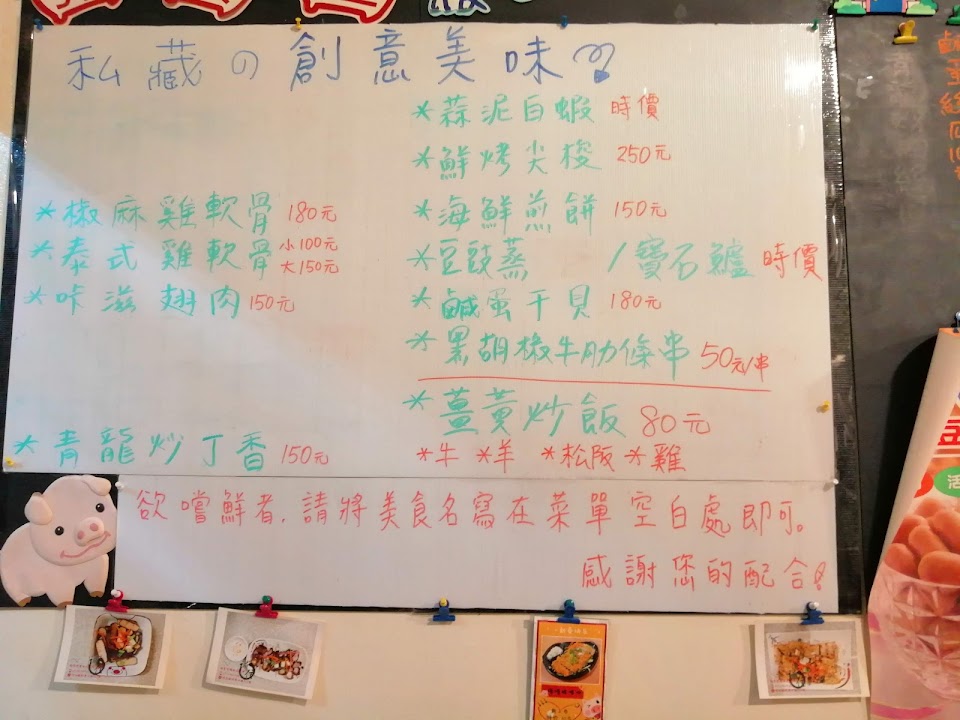 私藏の創意美味
*椒麻雞軟骨 180元
*泰式雞軟骨 小100元 大150元
*咔滋翅肉 150元
*青龍炒丁香 150元
*蒜泥白蝦 時價
*鮮烤尖梭 250元
*海鮮煎餅 150元
*豆豉蒸 /寶石鱸 時價
*鹹蛋干貝 180元
*黑胡椒牛肋條串 50元/串
*薑黃炒飯 80元
*牛 *羊 *松阪 *雞
欲嚐鮮者,請將美食名寫在菜單空白處即可。
感謝您的配合!